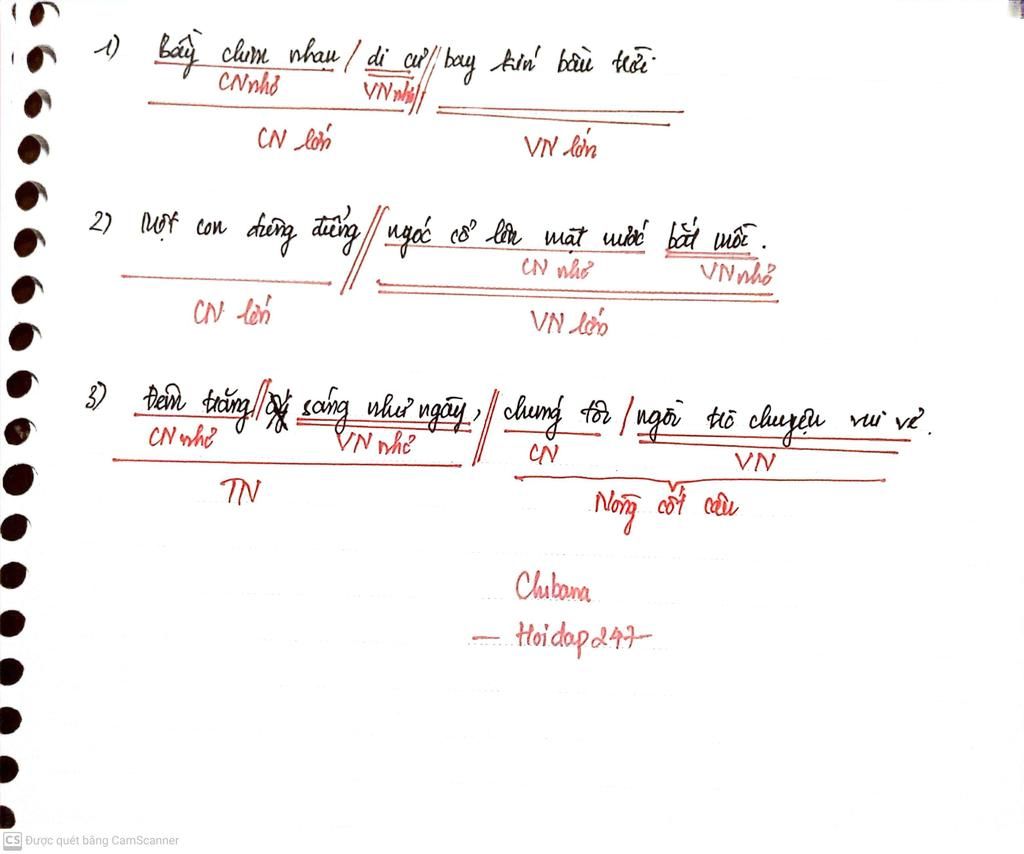 1) Bầy chim nhạn / di cư // bay kín bầu trời.
CN nhỏ VN nhỏ
CN lớn VN lớn
2) Một con đứng // ngóc cổ lên mặt nước bắt mồi.
CN nhỏ VN nhỏ
CN lớn VN lớn
3) Đêm trăng // sáng như ngày, // chúng tôi / ngồi trò chuyện vui vẻ.
CN nhỏ VN nhỏ CN VN
TN
Nòng cốt câu
Chibana
— Hoidap247—
CS Được quét bằng CamScanner